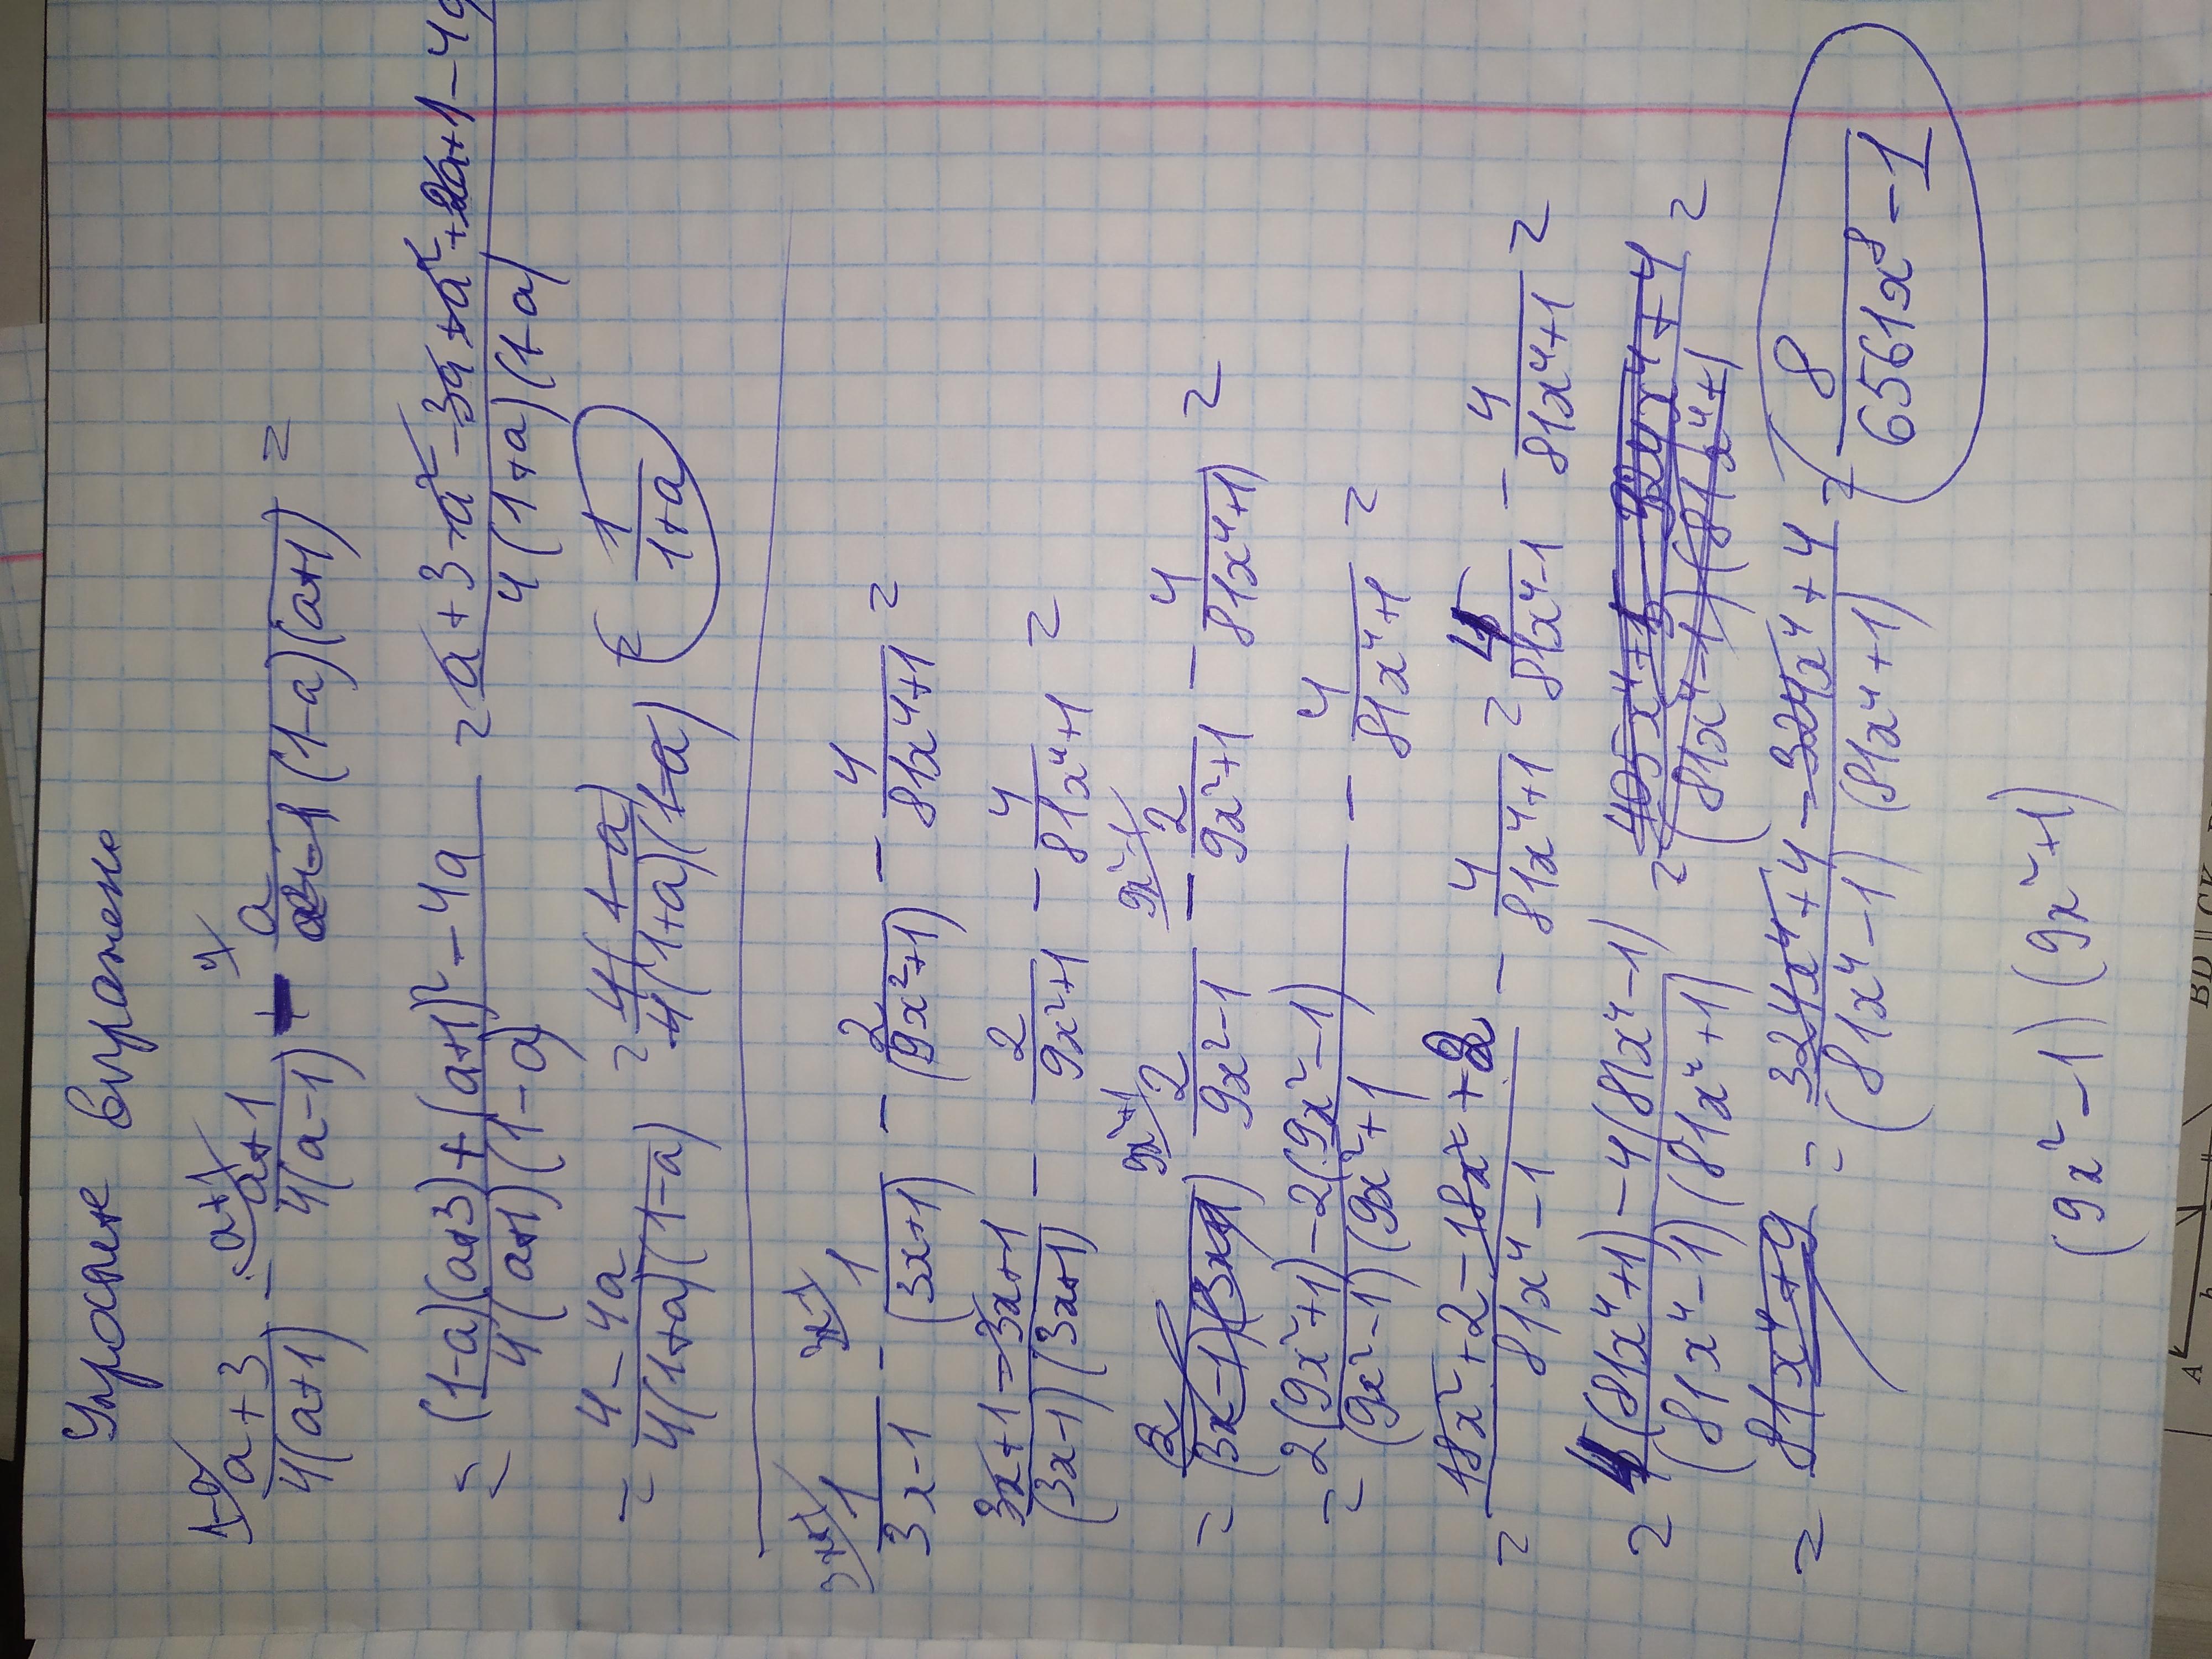 Упростите выражение
(a+3)/(4(a+1)) - (a+1)/(4(a-1)) - a/((1-a)(a+1)) =
= ((1-a)(a+3)+(a+1)²-4a)/(4(a+1)(1-a)) = (a+3-a²-3a+a²+2a+1-4a)/(4(1+a)(1-a))
= (4-4a)/(4(1+a)(1-a)) = 4(1-a)/(4(1+a)(1-a)) = 1/(1+a)
1/(3x-1) - 1/(3x+1) - 2/(9x²+1) - 4/(81x⁴+1) =
(3x+1-3x+1)/((3x-1)(3x+1)) - 2/(9x²+1) - 4/(81x⁴+1) =
= 2/((3x-1)(3x+1)) 2/(9x²-1) - 2/(9x²+1) - 4/(81x⁴+1) =
= (2(9x²+1)-2(9x²-1))/((9x²-1)(9x²+1)) - 4/(81x⁴+1) =
= (18x²+2-18x²+2)/(81x⁴-1) - 4/(81x⁴+1) = 4/(81x⁴-1) - 4/(81x⁴+1) =
= (4(81x⁴+1)-4(81x⁴-1))/((81x⁴-1)(81x⁴+1)) =
= 81x⁴+9 = (324x⁴+4-324x⁴+4)/((81x⁴-1)(81x⁴+1)) = 8/(6561x⁸-1)
(9x²-1)(9x²+1)
BD
A